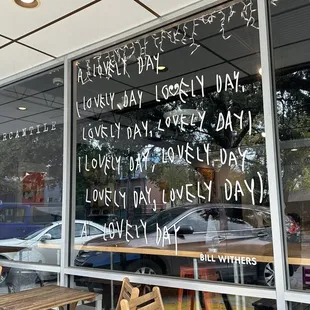 A LOVELY DAY
(LOVELY DAY LOVELY DAY,
LOVELY DAY, LOVELY DAY)
(LOVELY DAY, LOVELY DAY
LOVELY DAY, LOVELY DAY)
A LOVELY DAY
BILL WITHERS